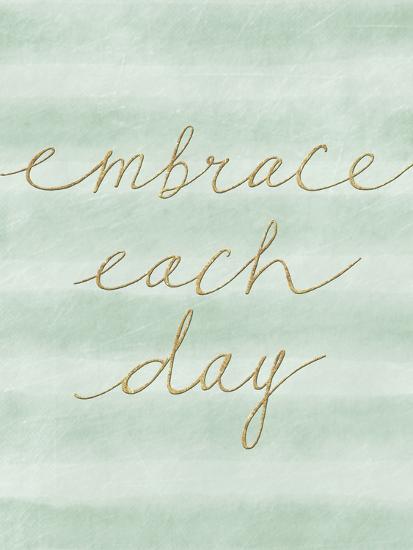 embrace
each
day